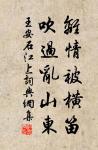 離情被橫笛
吹過亂山東
王安石江上詞典網集